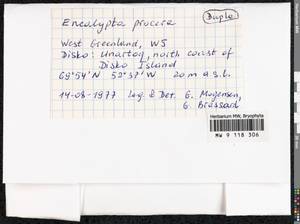 Encalypta procera
Duplo
West Greenland, W5
Disko: Unartoq, north coast of
Disko Island
69°54'N 52°37'W 20 m a.s.l.
14-08-1977 Leg. & Det. G. Mogensen,
G. Brassard
Herbarium MW, Bryophyta
MW 9 118 306